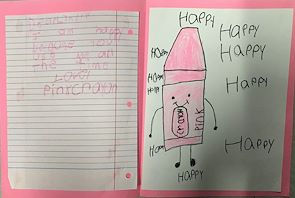 I am happy
because
the time
Love,
Pink crayon
Happy
Happy
Happy
Happy
Happy
Happy
Happy
Happy
Happy
crayon
Pink
Happy